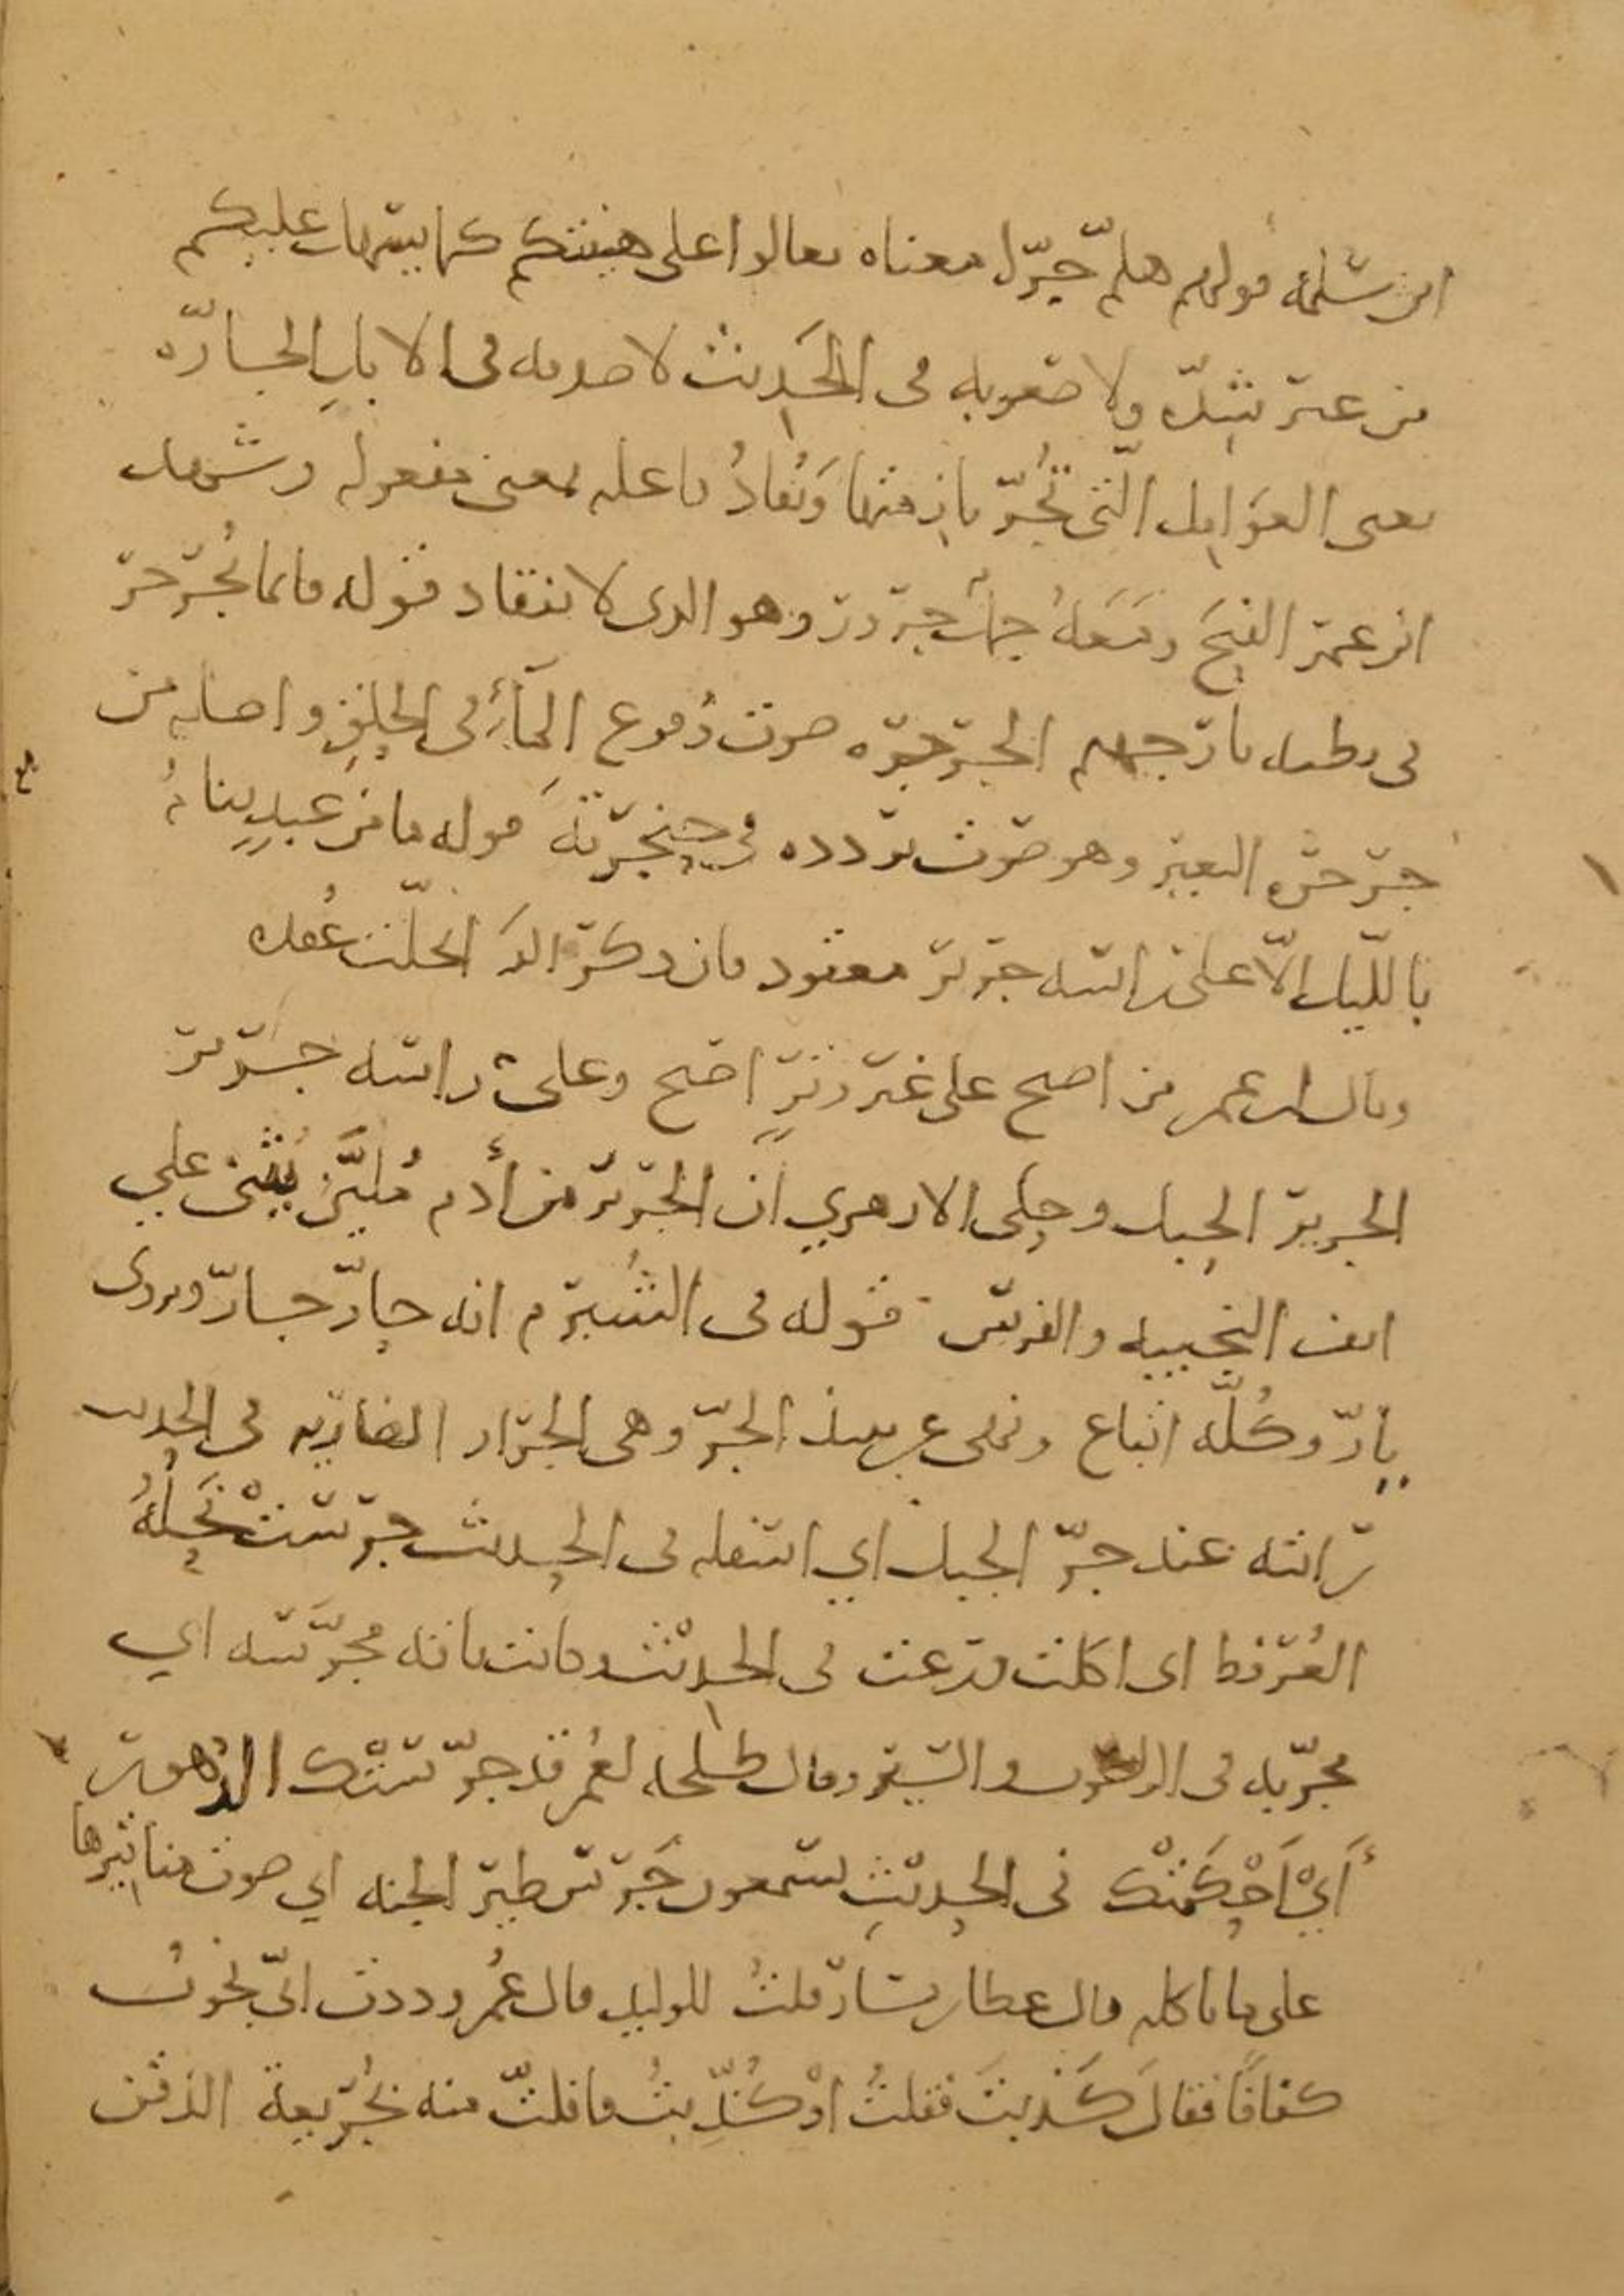 ابن سلمه قولهم هلمّ جرّا معناه تعالوا على هينتكم كما يسهل عليكم
من غير شدّه ولا صعوبه في الحديث لا صدقه في الابل الجارّه
يعني العوامل التي تُجرّ بازمتها وتُقادُ فاعله بمعنى مفعوله وشهد
ابن عمر الفتح ومَعَهُ جمل جرور وهو الذي لا ينقاد قوله فانما يُجرجر
في بطنه نار جهنم الجرجره صوت وُقوع المآءِ في الحلق واصله من
جرجره البعير وهو صوت تردده في حنجرته قوله ما من عبدٍ ينامُ
بالليل الّا على راسه جرير معقود فان ذكر الله انحلّت عُقده
وقال ابن عمر من اصبح على غير وترٍ اصبح وعلى راسه جرير
الجرير الحبل وحكى الازهري ان الجرير من أدم مُليَّن يُثنى على
انف النجيبه والفرس قوله في الشبرم انه حارّ جارّ ويروى
يارّ وكُلّه اتباع ونهى عن نبيذ الجرّ وهي الجرار الضاريه في الحديث
رايته عند جرّ الجبل اي اسفله في الحديث جرستْ نَحلُهُ
العُرفط اي اكلت ورعت في الحديث وكانت ناقه مجرّسه اي
مجرّبه في الركوب والسير وقال طلحه لعُمر قد جرّستْك الدهور
أَيْ اَحْكَمَتْك في الحديثِ يسمعون جَرس طير الجنه اي صوت مناقيرها
على ما تاكله قال عطا بن يسار قلتُ للوليد قال عُمر وددت انّي نجوتُ
كفافًا فقالَ كَذبتَ فقلتُ اوْ كُذِّبتُ فافلتّ منه بجُريعة الذقن